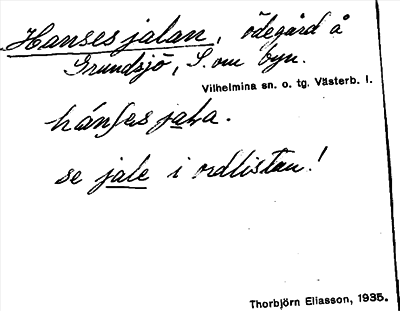 Hansesjalan, ödegård å
Grundsjö, S. om byn.
Vilhelmina sn. o. tg. Västerb. l.
se jale i ordlistan!
Thorbjörn Eliasson, 1935.